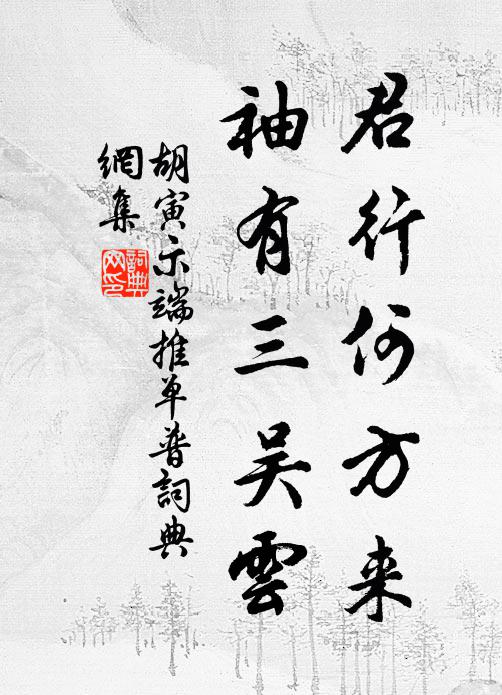 君行何方来
袖有三吴雲
胡寅示端推单普詞典
網集
詞典網印